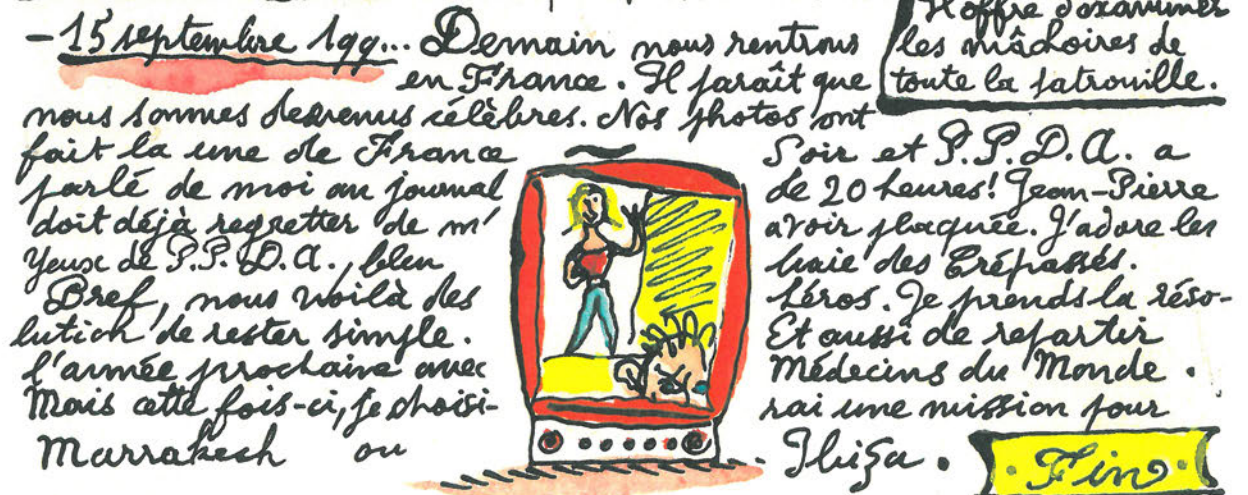 Il offre d'examiner
les mâchoires de
toute la patrouille.
- 15 septembre 199... Demain nous rentrons
en France. Il paraît que
nous sommes devenus célèbres. Nos photos ont
fait la une de France Soir et P.P.D.A. a
parlé de moi au journal de 20 heures! Jean-Pierre
doit déjà regretter de m'avoir plaquée. J'adore les
yeux de P.P.D.A., bleu baie des Trépassés.
Bref, nous voilà des héros. Je prends la réso-
lution de rester simple. Et aussi de repartir
l'année prochaine avec Médecins du Monde.
Mais cette fois-ci, je choisi-rai une mission pour
Marrakech ou Ibiza.
Fin